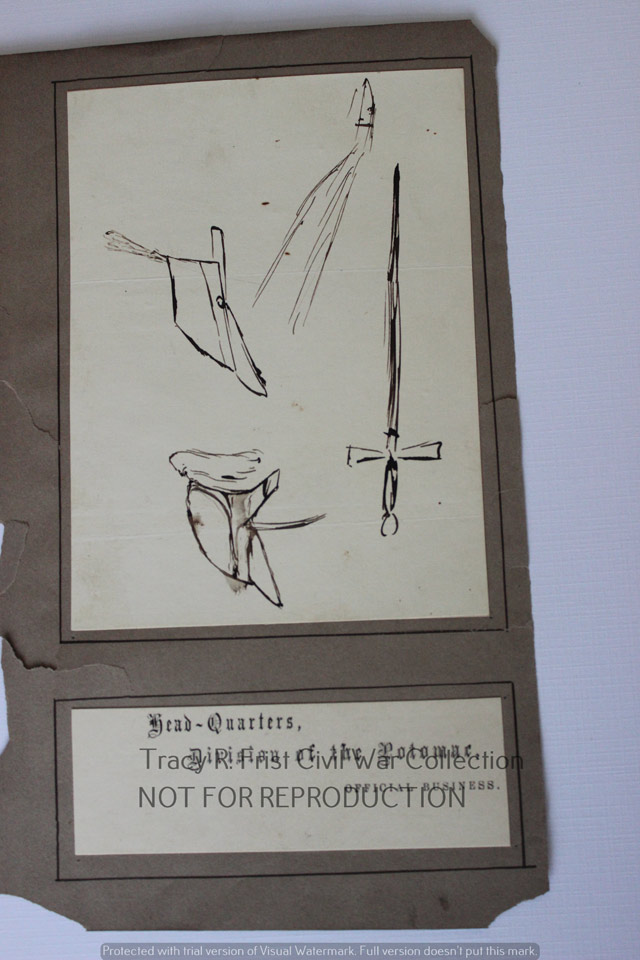 Head-Quarters,
Division of the Potomac.
Tracy R. Frist Civil War Collection
OFFICIAL BUSINESS.
NOT FOR REPRODUCTION
Protected with trial version of Visual Watermark. Full version doesn't put this mark.